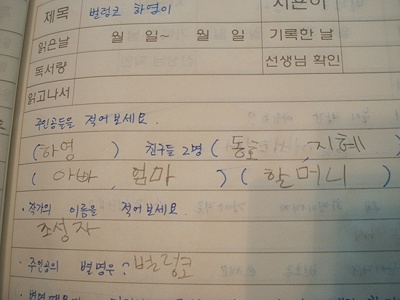 제목 벌렁코 하영이 지은이
읽은날 월 일~ 월 일 기록한 날
독서량 선생님 확인
읽고나서
주인공들을 적어 보세요.
(하영) 친구들 2명 (동호, 지혜)
(아빠, 엄마) (할머니)
·작가의 이름을 적어보세요.
조성자
·주인공의 별명은? 벌렁코